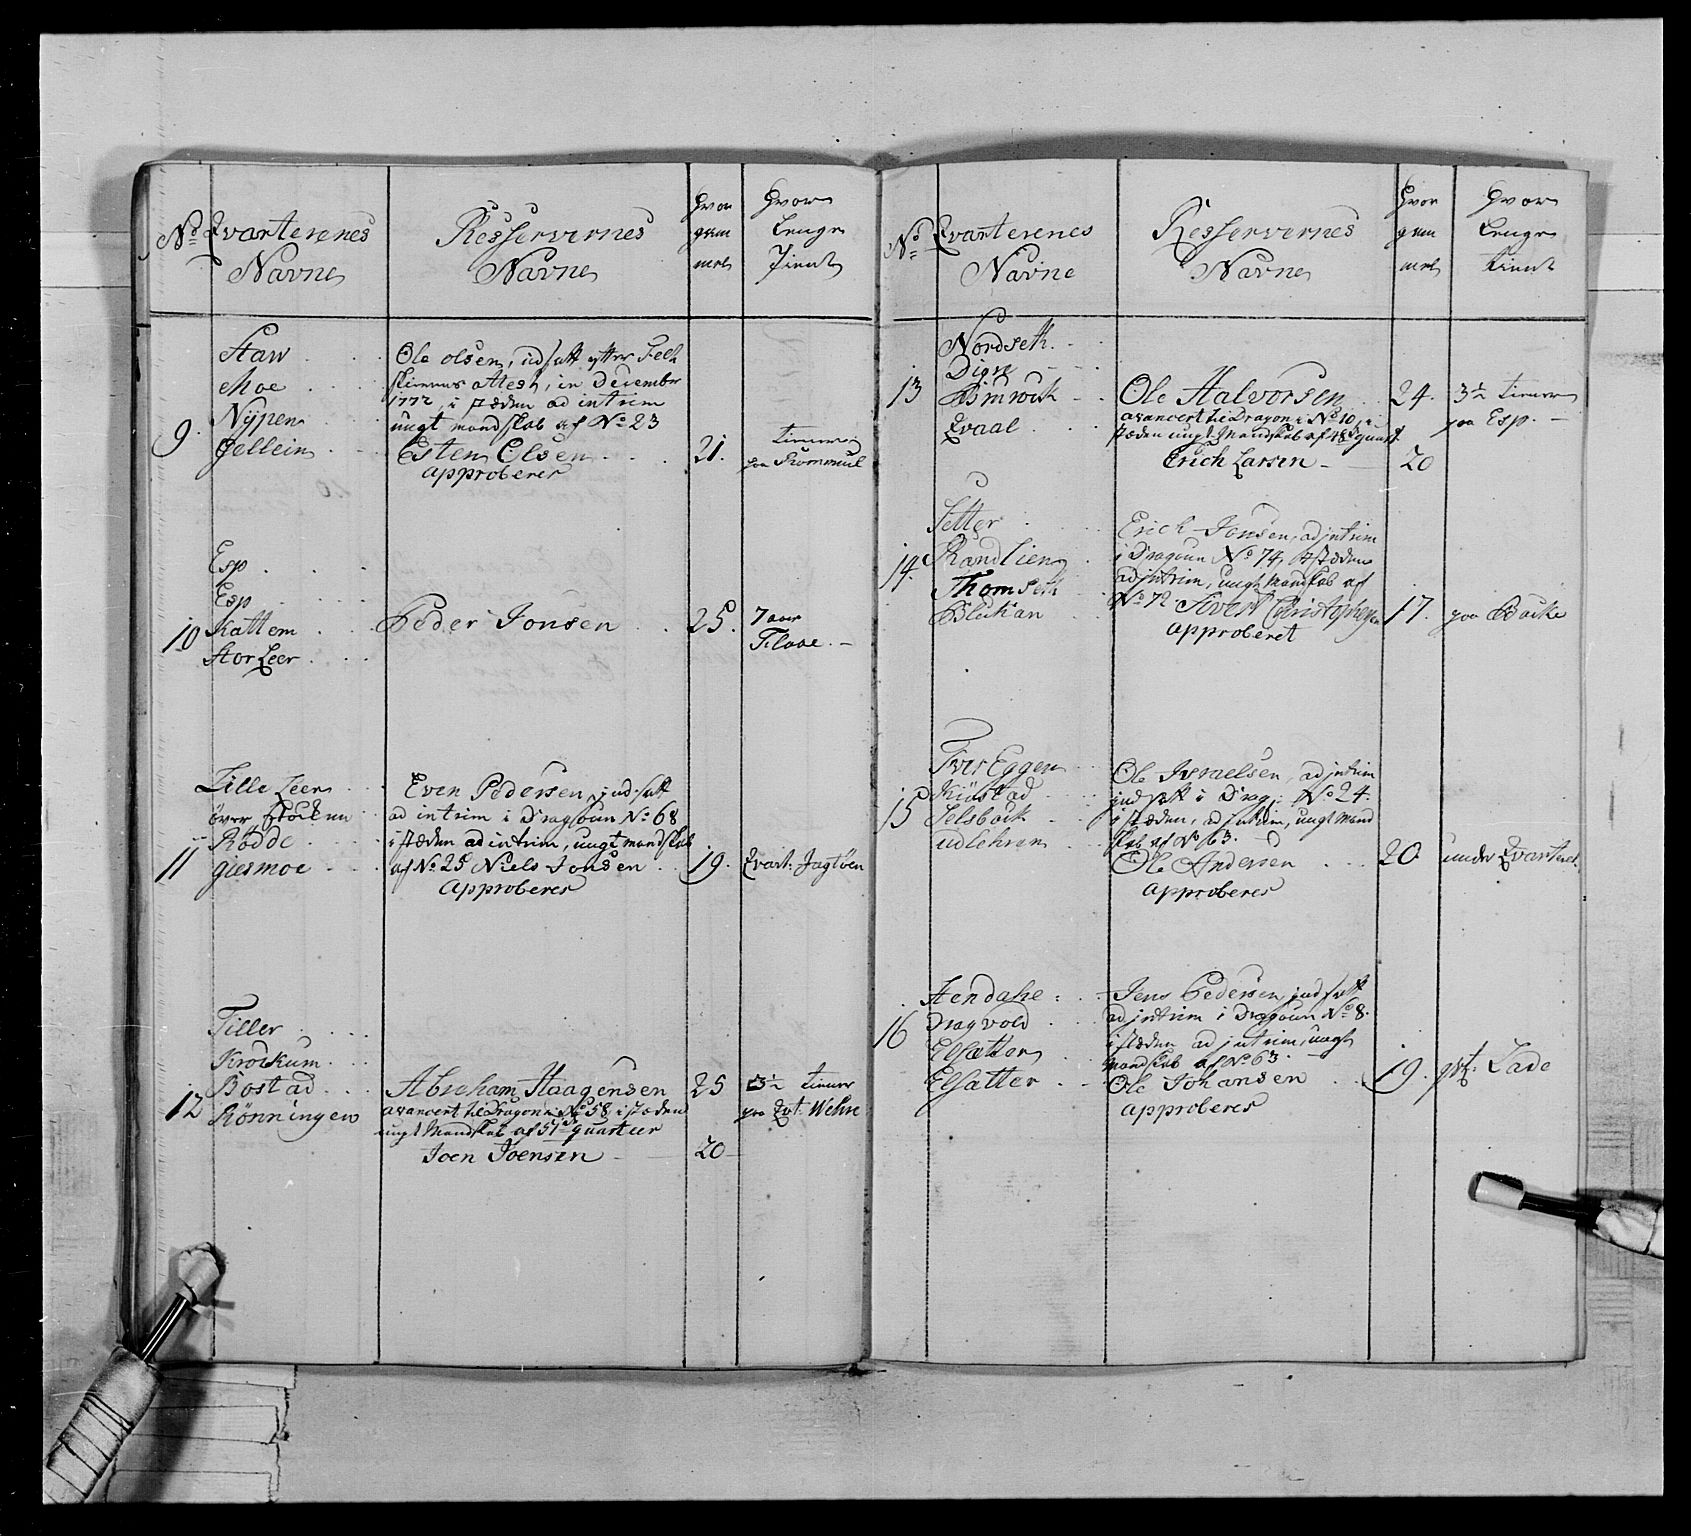 No Qvarterenes Navne
Resservernes Navne
hvor gam mel
hvor Lenge Tient
9.
Staw
Moe
Nÿpen
Gellein
Ole Olsen, udsatt efter Felt
skierens Attest, in December
1772, i stæden ad intrim
ungt mandskab af No 23
Esten Olsen
approberes
21.
10
Esp
Esp
Kattem
Stor Leer
Peder Jonsen
25.
7 aar
Tilaae
11
Lille Leer
över Stocken
Rödde
giesmoe
Even Pedersen, indsatt
ad intrim i Dragoun No 68
i stæden ad intrim, ungt mandskab
af No 25 Niels Jonsen
approberes
19.
Qvart: Jagtöen
12
Tiller
Krockum
Bostad
Rönningen
Abraham Haagensen
avancert til Dragon No 58, i stæden
ungt Mandskab af 51 quarteer
Joen Joensen
25
20
paa Qvt: Wehre
No Qvarterenes Navne
Resservernes Navne
hvor gam mel
hvor Lenge tient
13
Nordseth
Digre
Qvaal
Ole Halvorsen
avancert til Dragon No 10, i
stæden ungt Mandskab af 48de quart.
Erich Larsen
24.
20
3½
paa Esp.
14.
Setter
Randlien
Thomseth
Blechan
Erich Jonsen, ad intrim
i Dragoun No 74, i stæden
ad intrim, ungt Mandskab af
No 72 Sivert Christophersen
approberet
17.
paa Backe
15
Tver Eggen
Kiöstad
Selsback
udlehren
Ole Israelsen, ad intrim
indsatt i Drag: No 24.
i stæden, ad intrim, ungt Mand
skab af No 63.
Ole Andersen
approberes
20
under Qvarteret.
16
Dragvold
Elsætter
Elsatter
Jens Pedersen indsatt
ad intrim i Dragoun No 8.
i stæden ad intrim, ungt
mandskab af No 63.
Ole Johansen
approberes
19.
qvt: Lade